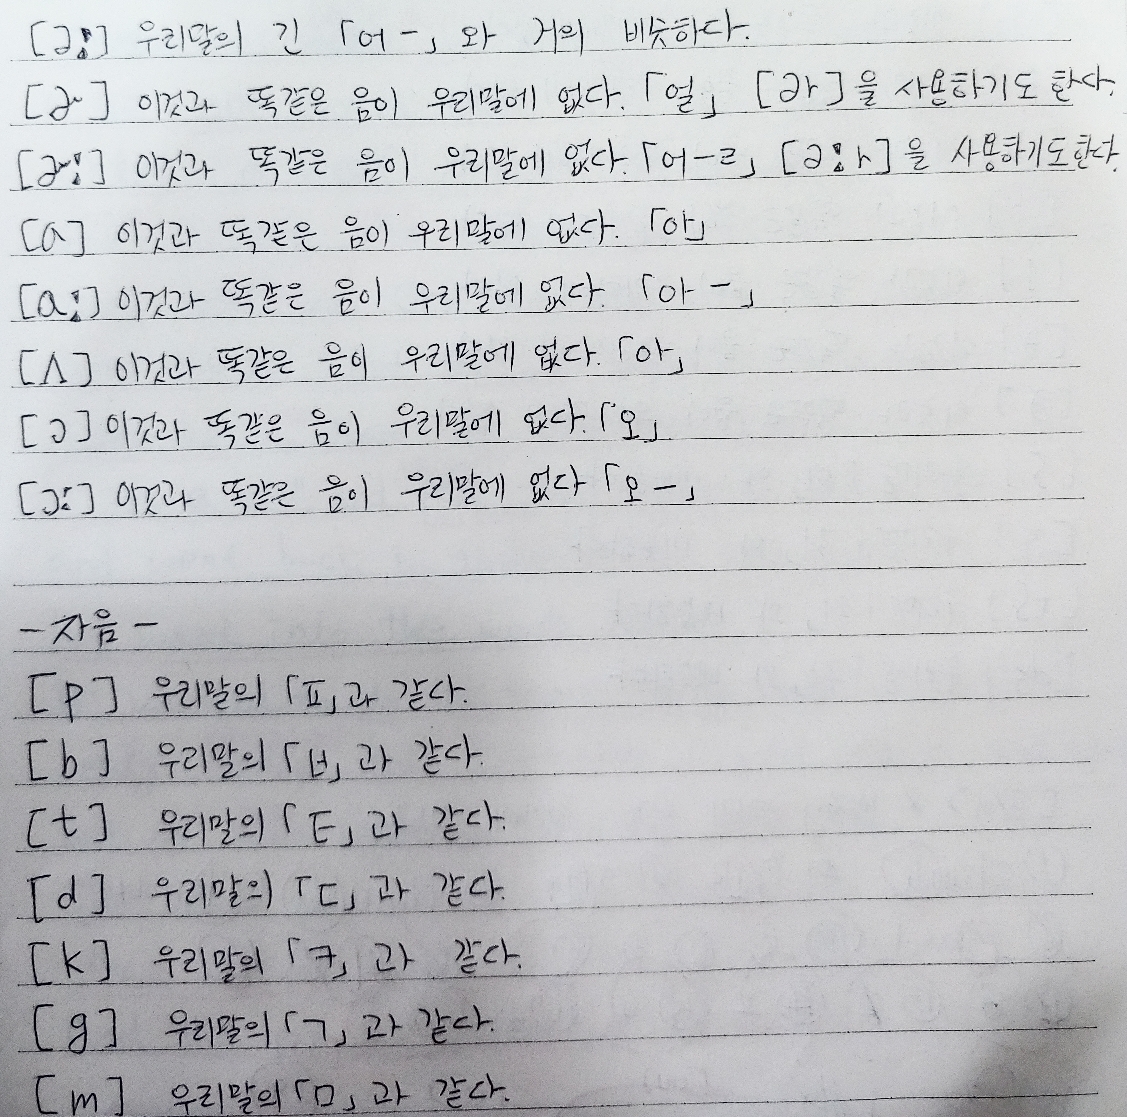 [əː] 우리말의 긴 「어ー」와 거의 비슷하다.
[ɚ] 이것과 똑같은 음이 우리말에 없다. 「얼」 [ər]을 사용하기도 한다.
[ɚː] 이것과 똑같은 음이 우리말에 없다. 「어ーㄹ」 [əːr]을 사용하기도 한다.
[ɑ] 이것과 똑같은 음이 우리말에 없다. 「아」
[ɑː] 이것과 똑같은 음이 우리말에 없다. 「아ー」
[ʌ] 이것과 똑같은 음이 우리말에 없다. 「아」
[ɔ] 이것과 똑같은 음이 우리말에 없다. 「오」
[ɔː] 이것과 똑같은 음이 우리말에 없다 「오ー」
- 자음 -
[p] 우리말의 「ㅍ」과 같다.
[b] 우리말의 「ㅂ」과 같다.
[t] 우리말의 「ㅌ」과 같다.
[d] 우리말의 「ㄷ」과 같다.
[k] 우리말의 「ㅋ」과 같다.
[g] 우리말의 「ㄱ」과 같다.
[m] 우리말의 「ㅁ」과 같다.